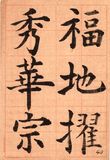 福地擢
秀華宗